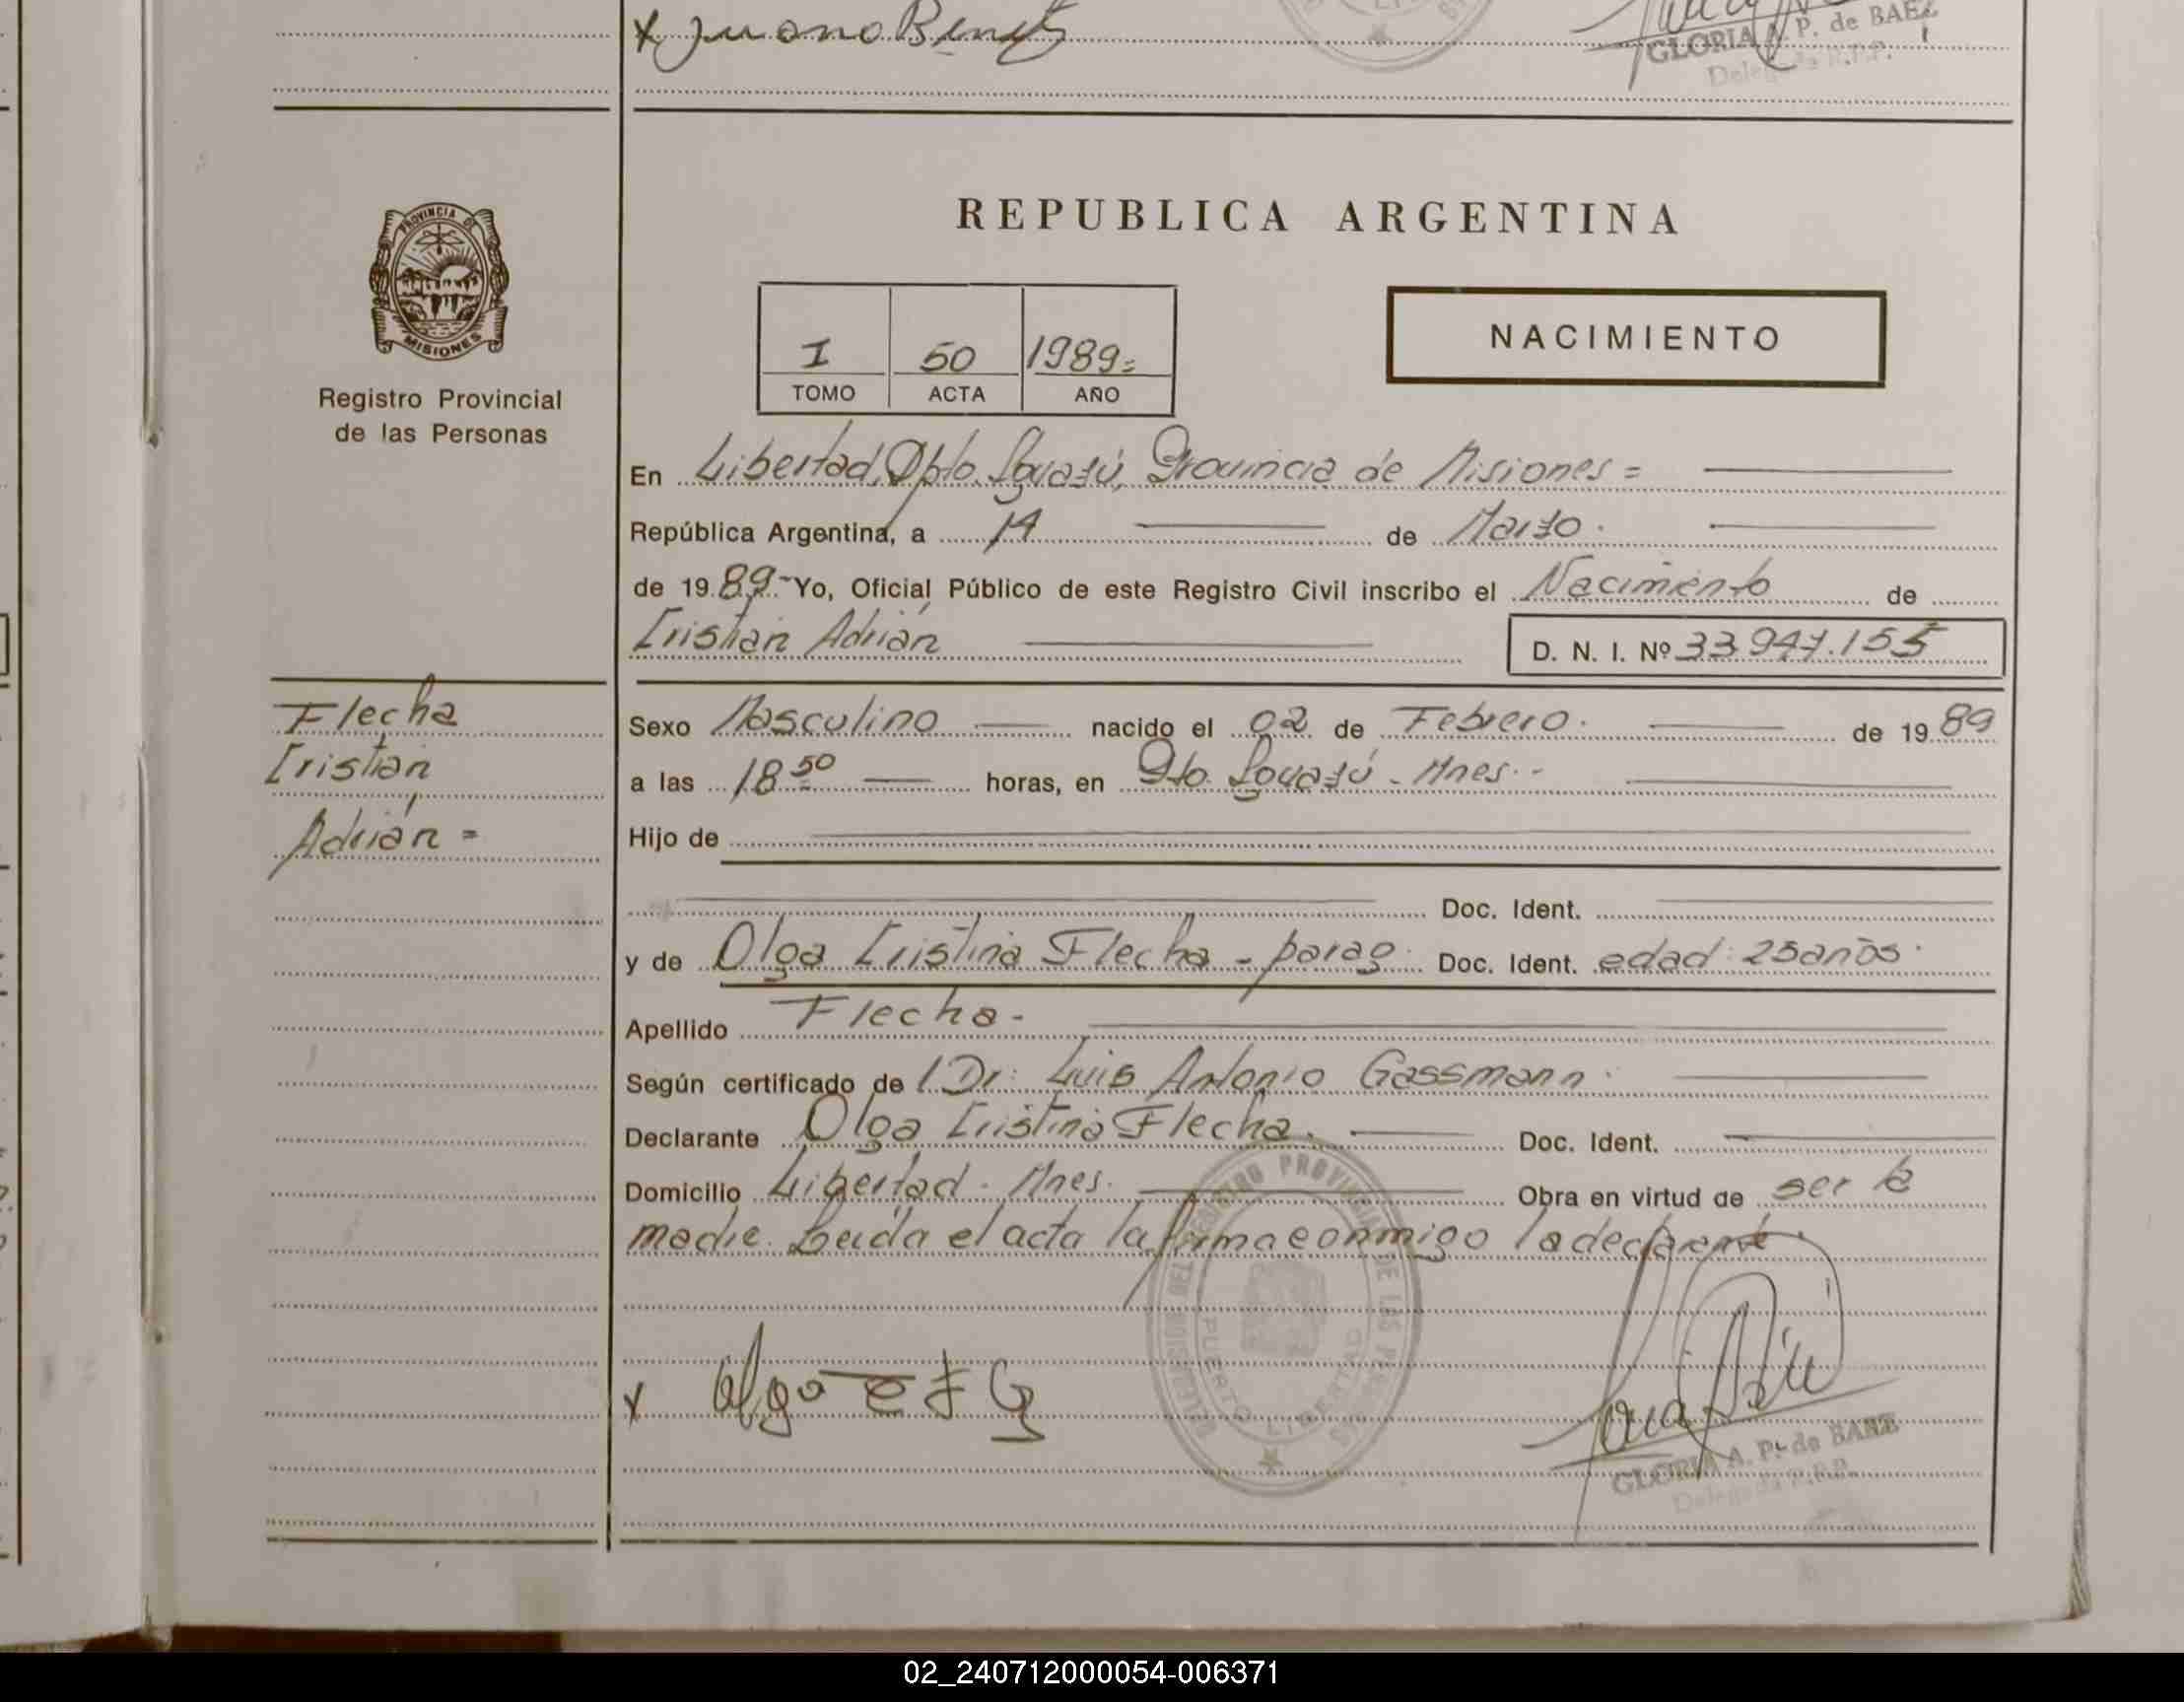 x Juana Benet
GLORIA A. P. de BAEZ
Delegada R.P.P.
PROVINCIA DE
MISIONES
Registro Provincial
de las Personas
REPUBLICA ARGENTINA
I 50 1989=
TOMO ACTA AÑO
NACIMIENTO
En Libertad, Dpto. Iguazú, Provincia de Misiones =
República Argentina, a 14 de Marzo.
de 19 89 - Yo, Oficial Público de este Registro Civil inscribo el Nacimiento de
Cristian Adrián D. N. I. Nº 33.947.155
Flecha
Cristian
Adrián =
Sexo Masculino nacido el 02 de Febrero. de 19 89
a las 18 50 horas, en Pto. Iguazú - Mnes. -
Hijo de
Doc. Ident.
y de Olga Cristina Flecha - parag. Doc. Ident. edad: 25 años.
Apellido Flecha -
Según certificado de l Dr: Luis Antonio Gassmann.
Declarante Olga Cristina Flecha. Doc. Ident.
Domicilio Libertad - Mnes. Obra en virtud de ser la
madre. Leída el acta la firma conmigo la declarante.
DELEGACION DEL REGISTRO PROVINCIAL DE LAS PERSONAS
PUERTO LIBERTAD
x Olga C F G
GLORIA A. P. de BAEZ
Delegada R.P.P.
02_240712000054-006371